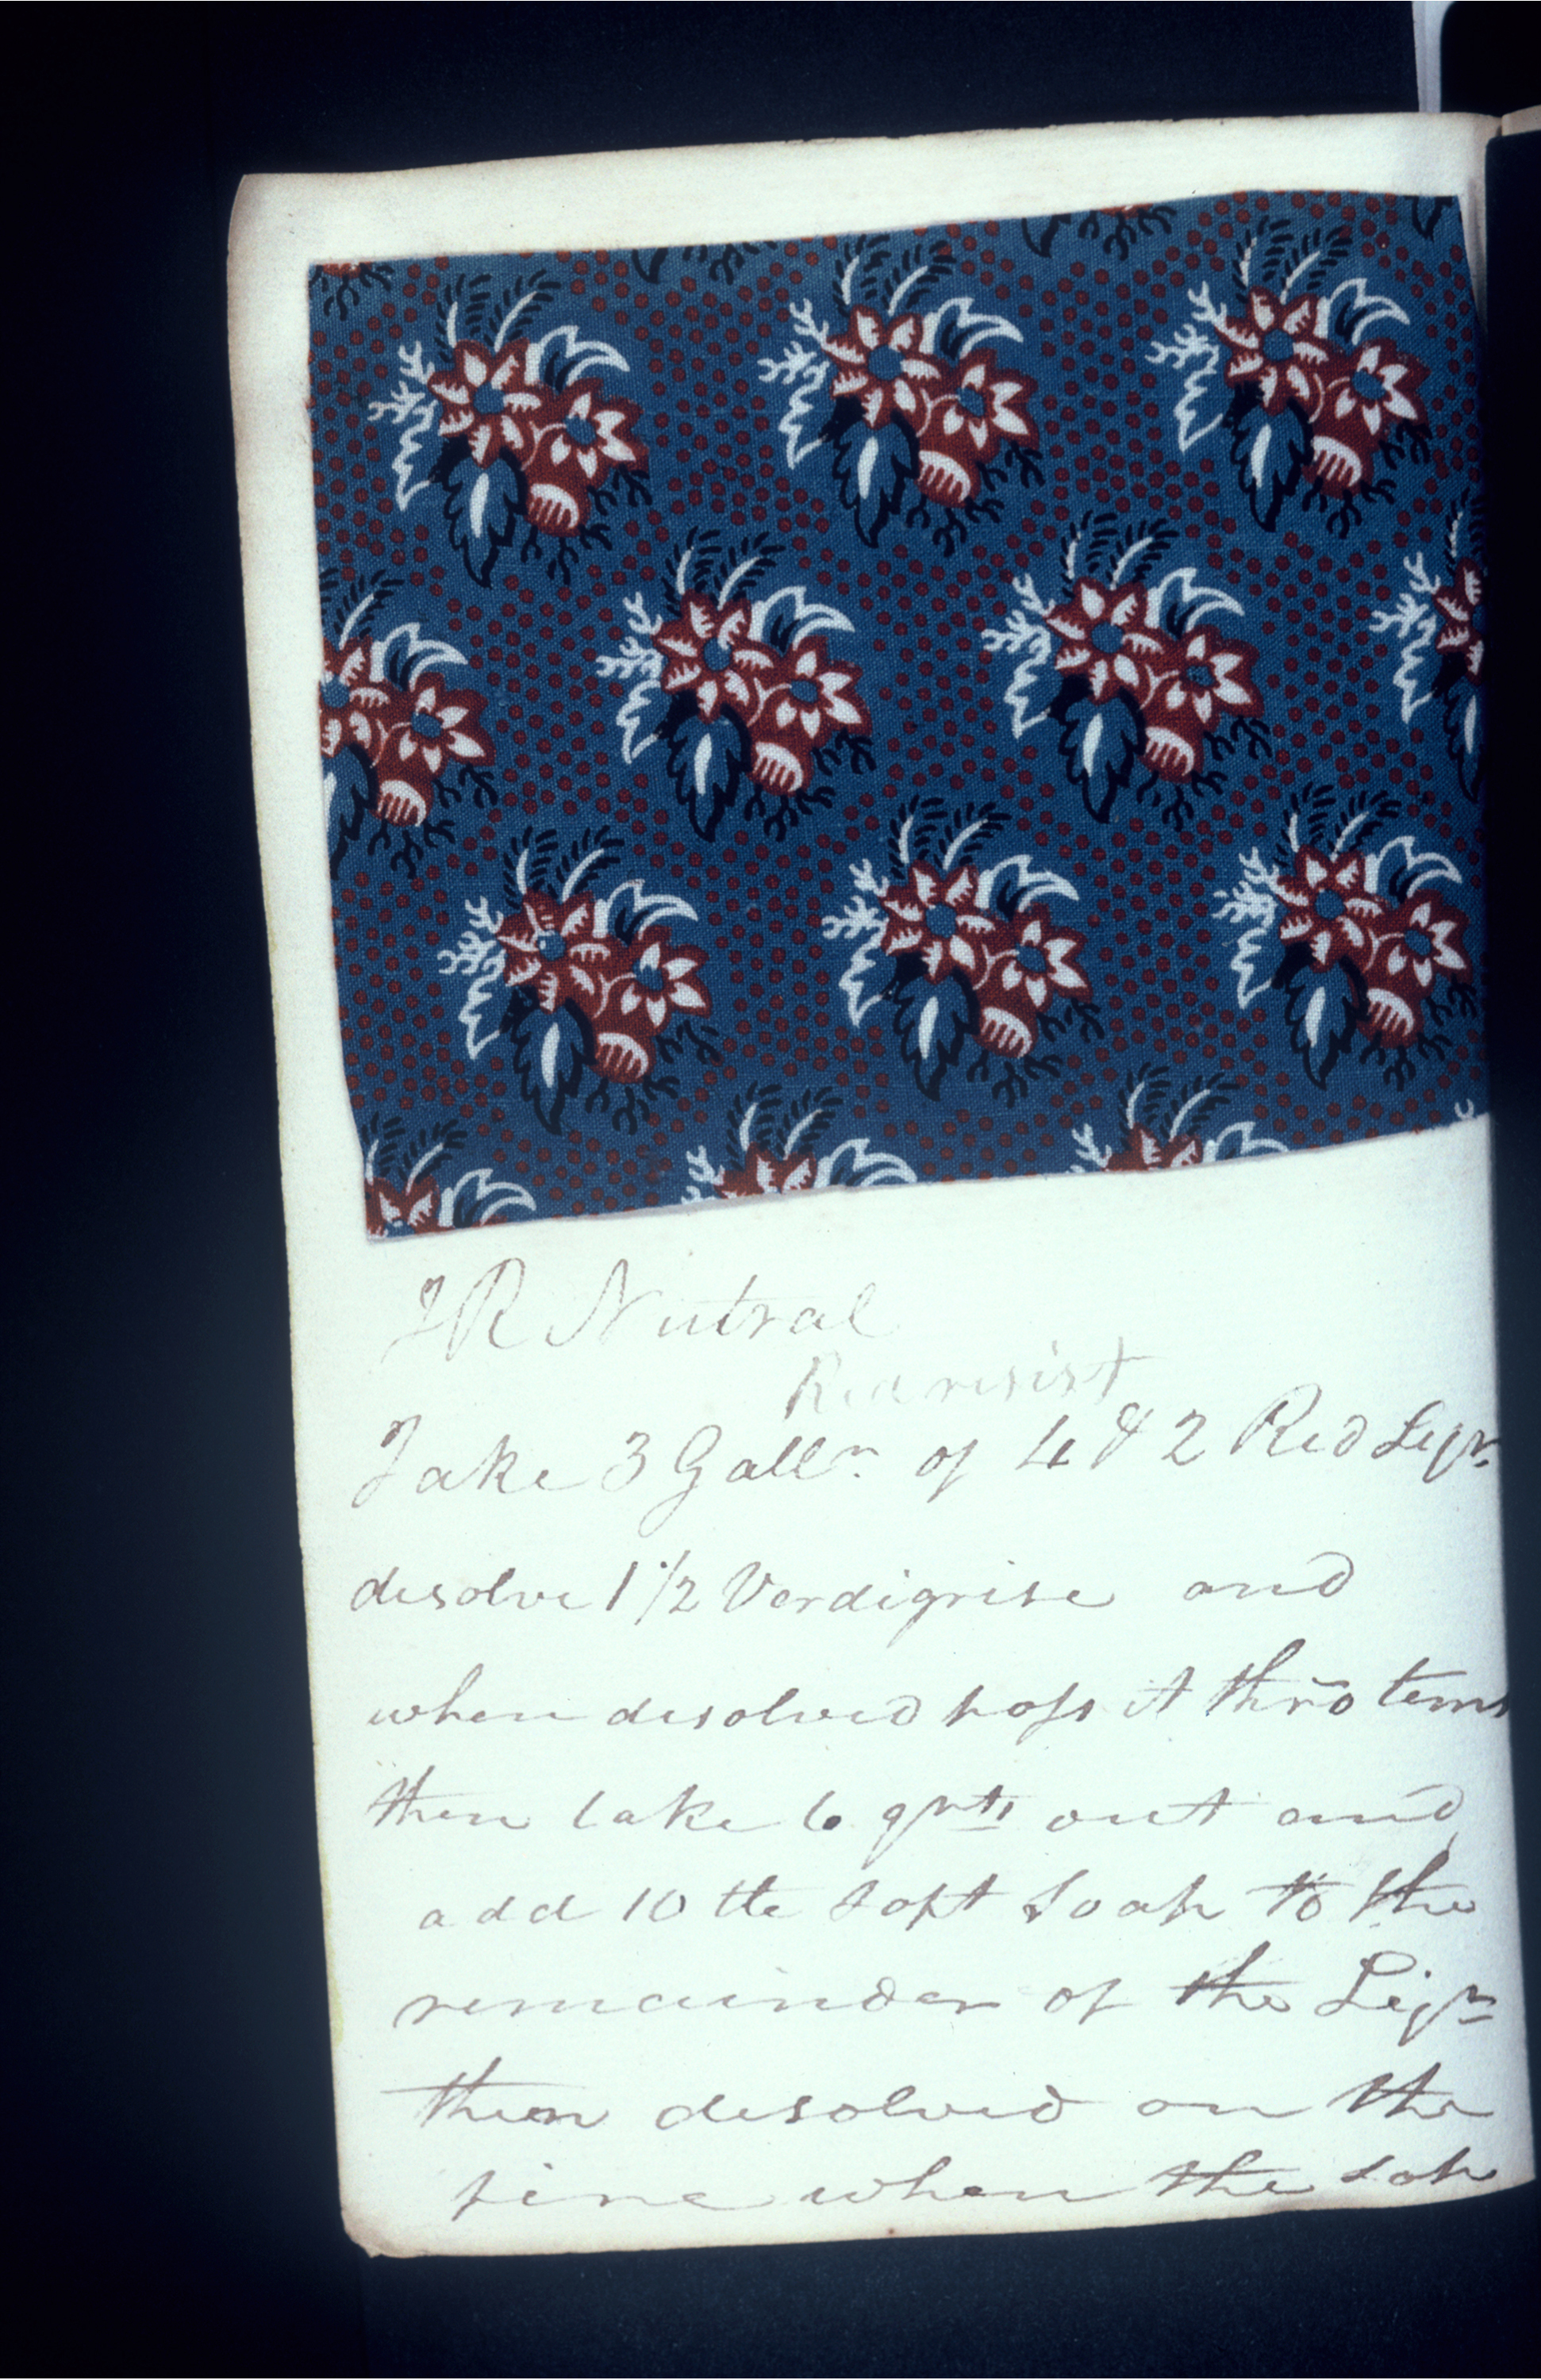 JR Nutral
Red resist
Take 3 Galln. of 4 & 2 Red Liqr
disolve 1 1/2 Verdigrise and
when disolved pass it thro tems
then take 6 qrts out and
add 10 lb soft Soap to the
remainder of the Liqr
then disolved on the
fire when the sop